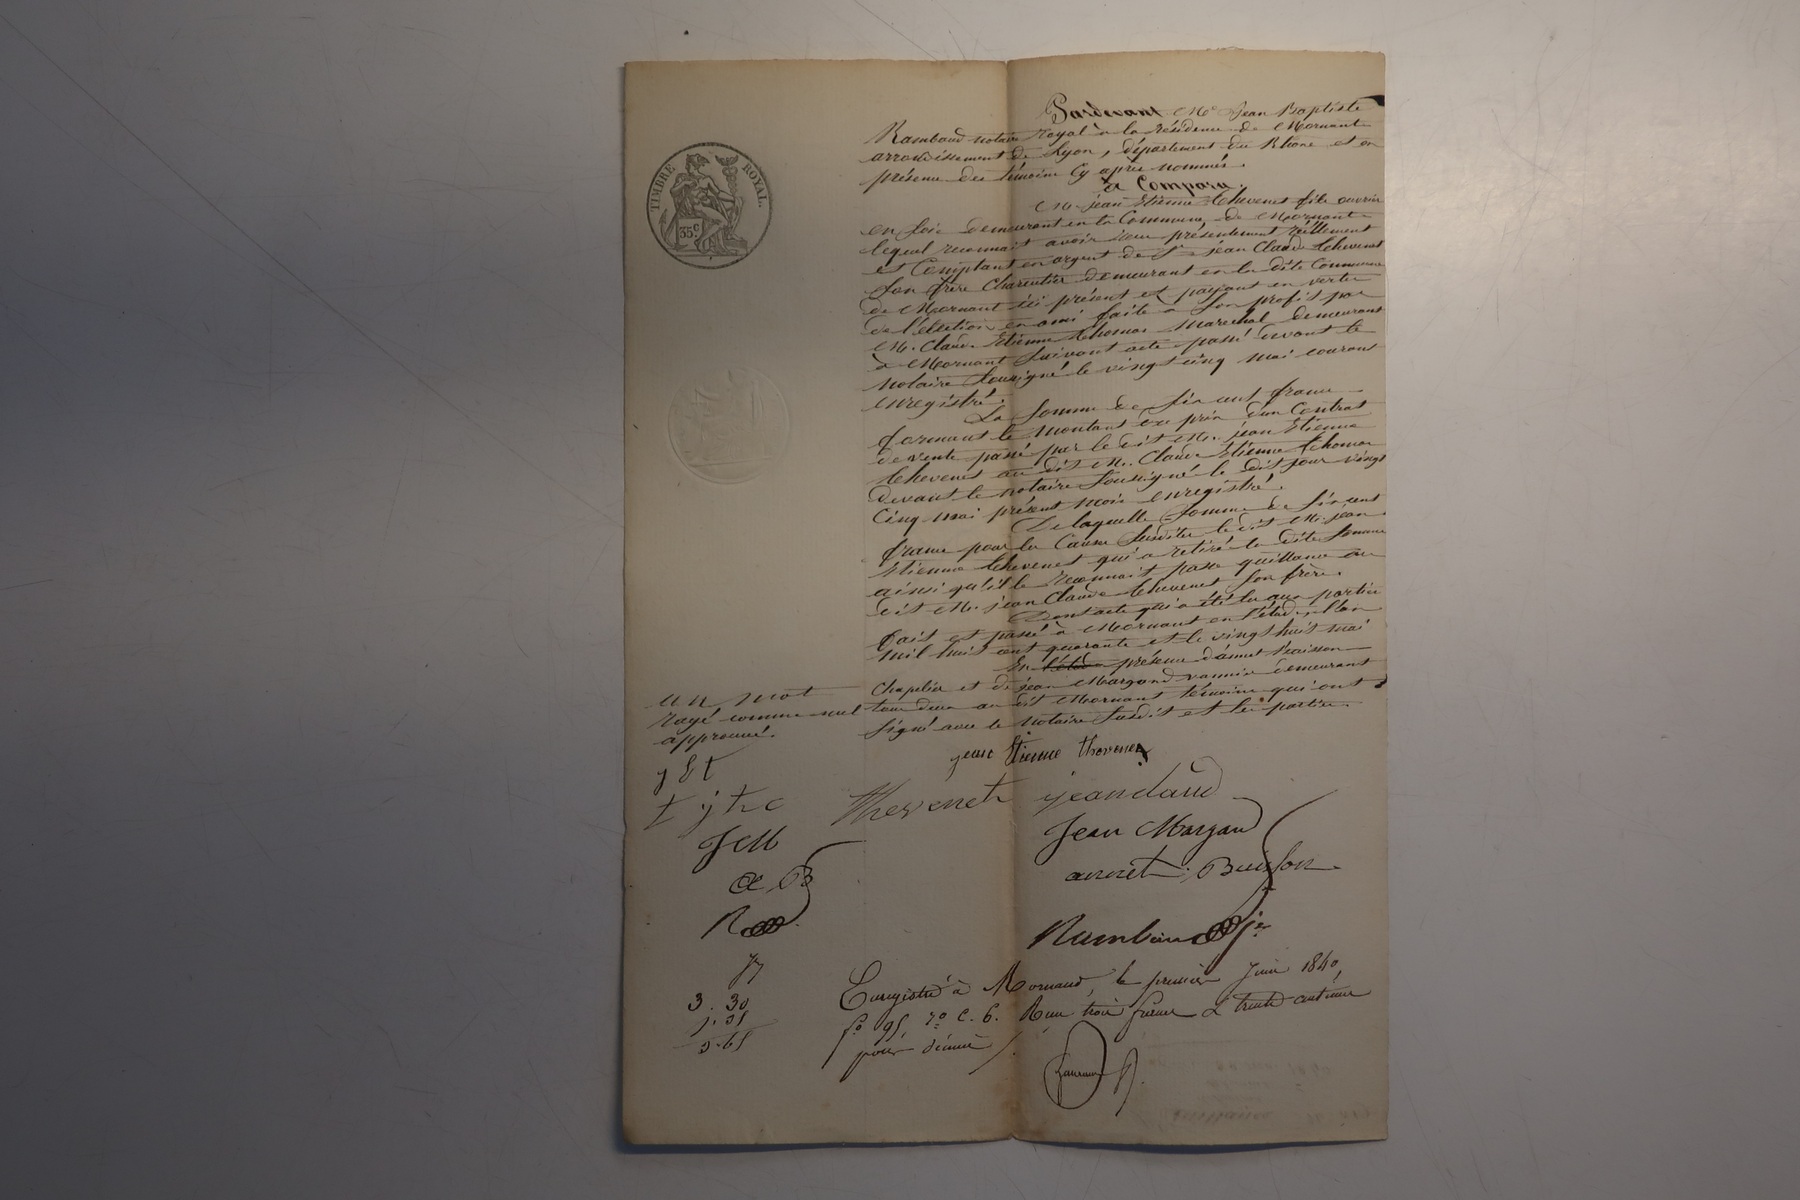 TIMBRE ROYAL.
35 c
Pardevant Me Jean Baptiste
Rambaud notaire royal à la résidence de Mornant
arrondissement de Lyon, département du Rhône et en
présence des témoins cy après nommés.
a Comparu.
M. jean Etienne thevenet fils ouvrier
en soie demeurant en la Commune de Mornant
lequel reconnait avoir reçu présentement réellement
et Comptant en argent de sr jean Claude thevenet
son frère Charpentier demeurant en la dite Commune
de Mornant ici présent et payant en vertu
de l'élection en ami faite à son profit par
M. Claude Etienne thomas Maréchal demeurant
à Mornant suivant acte passé devant le
notaire soussigné le vingt cinq mai courant
enregistré.
La somme de six cent francs
formant le montant du prix d'un Contrat
de vente passé par le dit M. jean Etienne
thevenet au dit M. Claude Etienne thomas
devant le notaire soussigné le dit jour vingt
cinq mai présent mois enregistré.
De laquelle somme de six cent
francs pour la Cause susdite le dit M. jean
Etienne thevenet qui a retiré la dite somme
ainsi qu'il le reconnait passe quittance au
dit M. jean Claude thevenet son frère.
Dont acte qui a été lu aux parties
fait et passé à Mornant en l'étude l'an
mil huit cent quarante et le vingt huit mai
En présence d'annet Buisson
Chapelier et de jean Margand vannier demeurant
tous deux au dit Mornant témoins qui ont
signé avec le notaire susdit et les parties.
un mot
rayé comme nul
approuvé.
j E t
t j t c
jean Etienne thevenet
thevenet jeanclaud
JM
Jean Margand
a B
annet Buisson
R
Rambaud jr
3. 30
Enregistré à Mornand, le premier Juin 1840,
fo 95, ro c. 6. Reçu trois francs & trente centimes
pour décime